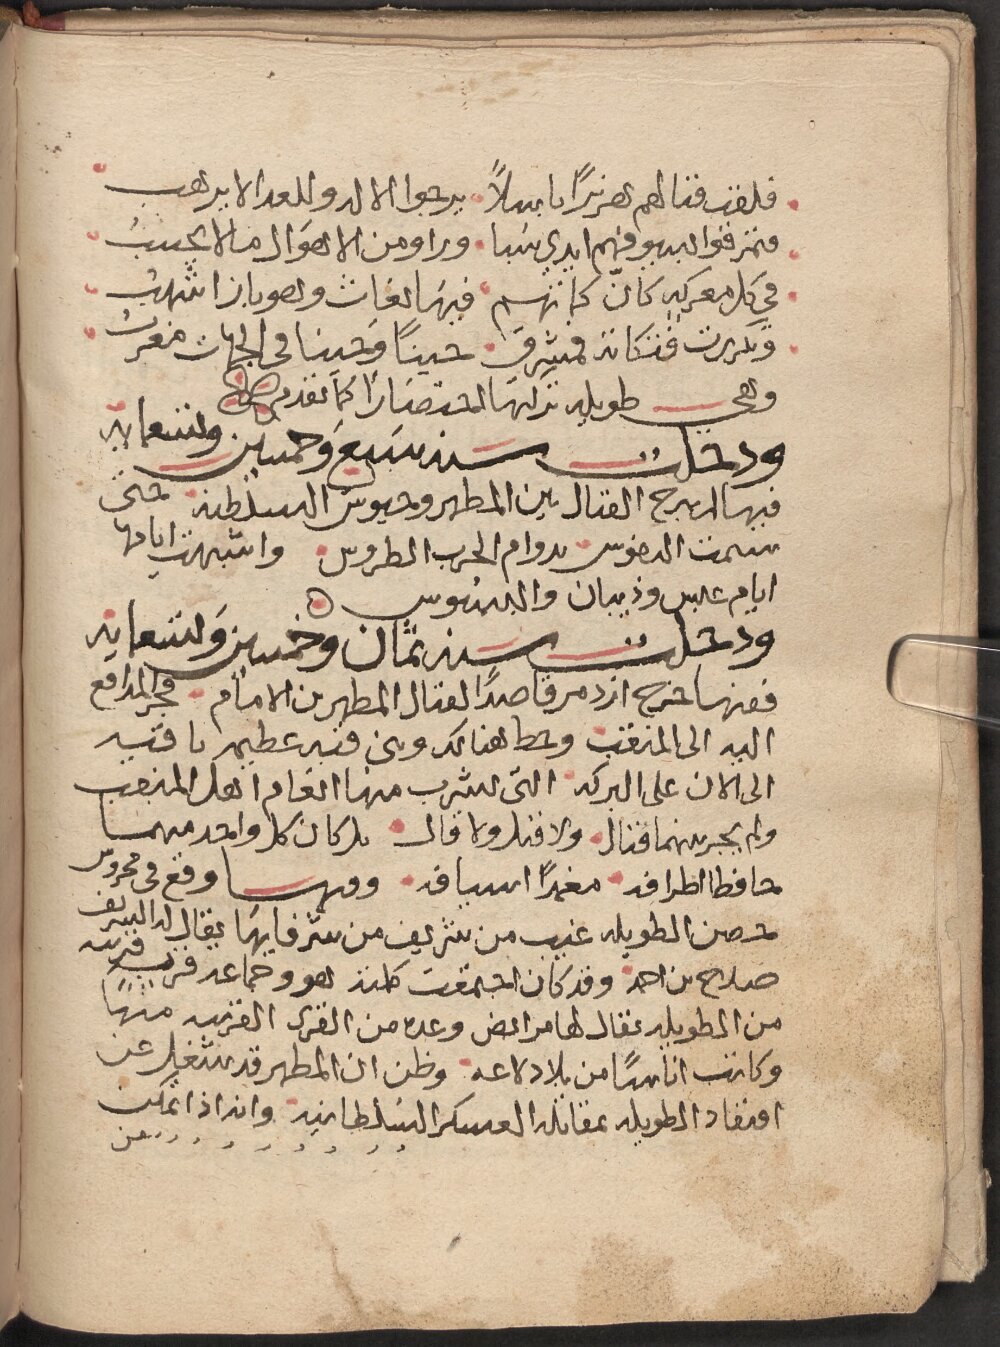 فلقت قتالهم هزبرًا باسلًا يرجوا الاله وللعدا لا يرهب
فتمزقوا بسيوفهم ايدي سبا وراو من الاهوال ما لا يحسب
في كل معركه كان كماتهم فيها بغاث وهو باز اشهب
وتكررت فتكاته فمشرق حينًا وحينا في الجهات مغرب
وهي طويله تركتها اختصارًا كما تقدم
ودخلت سنه سبع وخمسين وتسعمايه
فيها لم يبرح القتال بين المطهر وجيوش السلطنه حتى
سئمت النفوس بدوام الحرب الطروس واشبهت ايامها
ايام عبس وذبيان والبسوس
ودخلت سنه ثمان وخمسين وتسعمايه
ففيها خرج ازدمر قاصدًا لقتال المطهر بن الامام فجر المدافع
اليه الى المنقب وحط هنالك وبنى قبه عظيمه باقيه
الى الان على البركه التى تشرب منها انعام اهل المنقب
ولم يجر بينهما قتال ولا قيل ولا قال بل كان كل واحد منهما
حافظا اطرافه مغمدًا اسيافه وفيها وقع في محروس
حصن الطويله عيب من شريف من شرفايها يقال له الشريف
صلاح بن احمد وقد كان اجتمعت كلمته هو وجماعه قريب قريه
من الطويله يقال لها مرابض وعده من القرى القريبه منها
وكاتب اناسًا من بلاد لاعه وظن ان المطهر قد شغل عن
افتقاد الطويله بمقابله العسكر السلطانيه وانه اذا تمكن
من